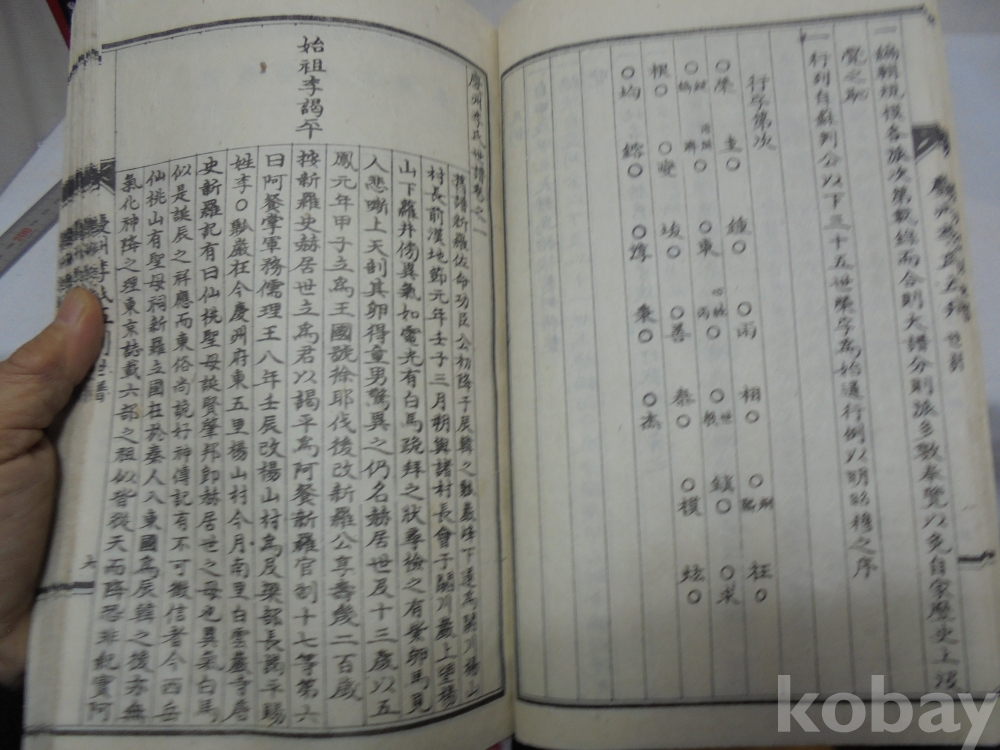 一編輯規模各派次第載錄而合則大譜分則派乡數奉覽以免自家歷史上
覽之恥
一行列自叅判公以下三十五世榮字爲始遞行例以明昭穆之序
行字第次
圭○ 鍾○ ○雨 栩○ ○ 枉○
○榮 ○東 鎭○ ○求
根○ ○燮 埈○ ○善 泰○ ○模 炫○
○均 鎔○ ○淳 秉○ ○杰
慶州李氏世譜卷之一
始祖李謁平
按譜新羅佐命功臣公初降于辰韓之
村長前漢地節元年壬子三月朔與諸村長會于閼川岸上望楊
山下羅井傍異氣如電光有白馬跪拜之狀尋檢之有紫卵馬見
人悲嘶上天剖其卵得童男驚異之仍名赫居世及十三歲以五
鳳元年甲子立爲王國號徐耶伐後改新羅公享壽幾二百歲
按新羅史赫居世立爲君以謁平爲阿餐新羅官制十七等第六
曰阿餐掌軍務儒理王八年壬辰改楊山村爲及梁部長謁平賜
姓李○瓢巖在今慶州府東五里楊山村今月南里白雲臺寺
史新羅記有曰仙桃聖母誕賢肇邦卽赫居世之母也異氣白馬
似是誕辰之祥應而東俗尙詭好神傳記有不可徵信者今西岳
仙桃山有聖母祠新羅立國在於秦人入東國爲辰韓之後亦無
氣化神降之理東京誌載六部之祖似皆從天而降恐非紀實阿
慶州李氏五刊世譜
六
kobay